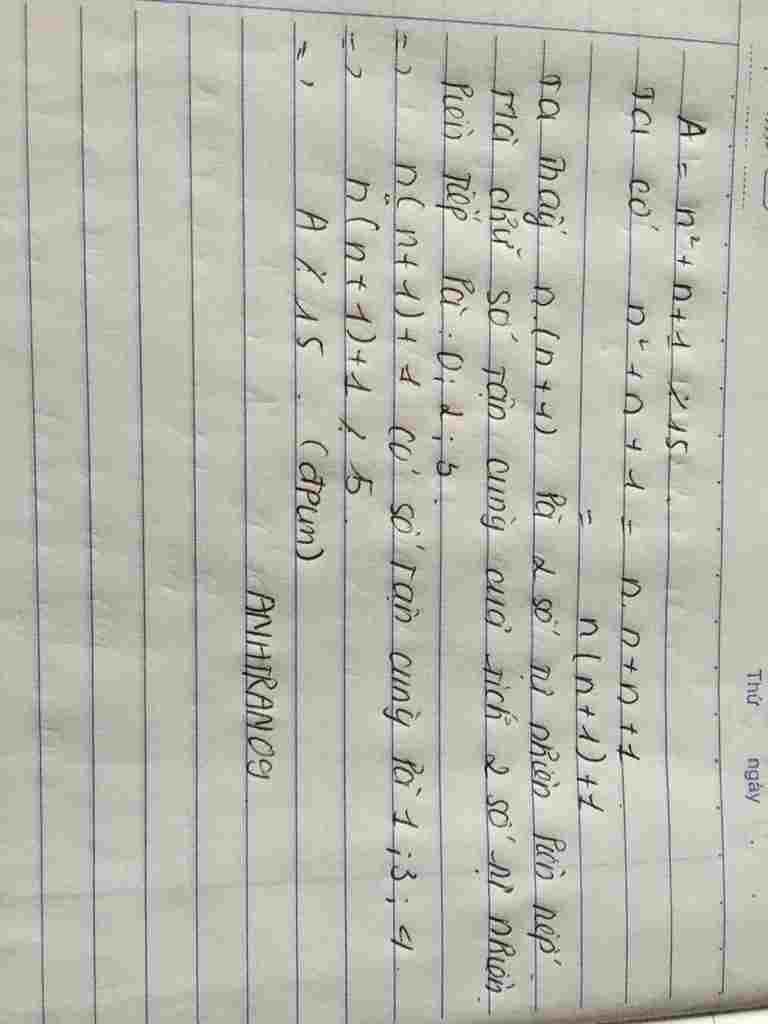 Thứ ngày
A = n² + n + 1 ⋮̸ 15.
Ta có n² + n + 1 = n.n + n + 1
= n(n + 1) + 1
Ta thấy n.(n+1) là 2 số tự nhiên liên tiếp.
Mà chữ số tận cùng của tích 2 số tự nhiên
liên tiếp là : 0; 2; 3.
=> n(n+1) + 1 có số tận cùng là 1; 3; 4.
=> n(n+1)+1 ⋮̸ 5.
=> A ⋮̸ 15. (đpcm)
ANHTRAN09